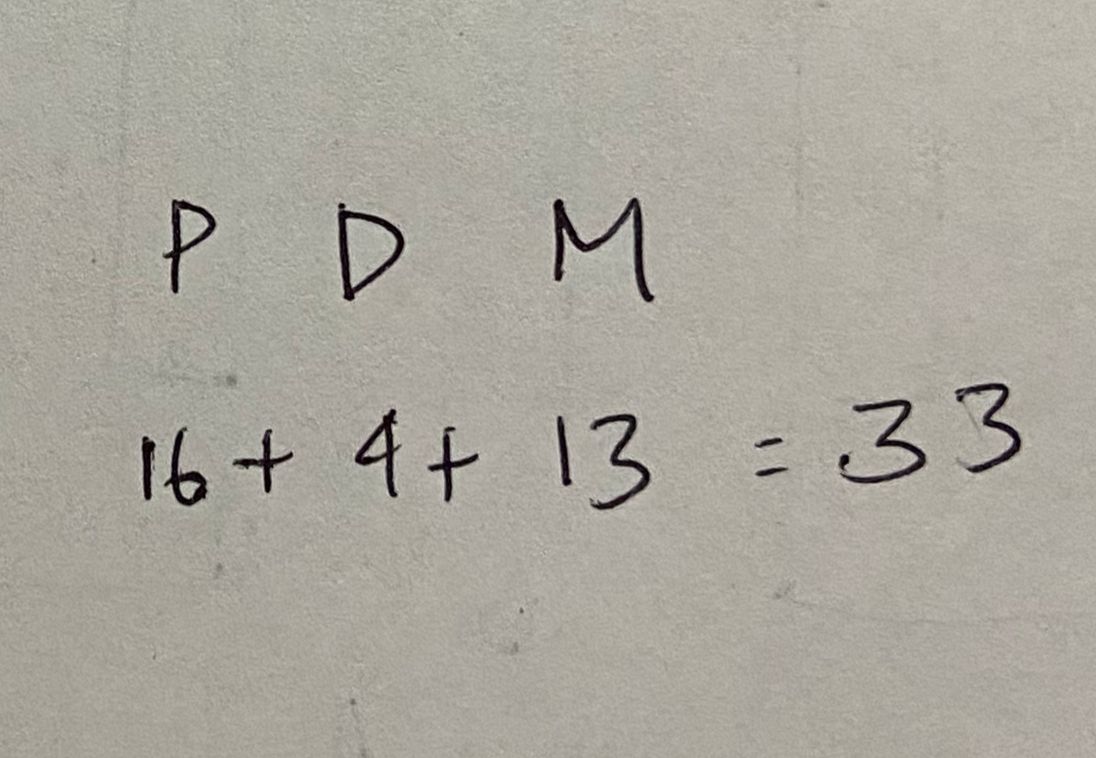 P D M
16 + 4 + 13 = 33